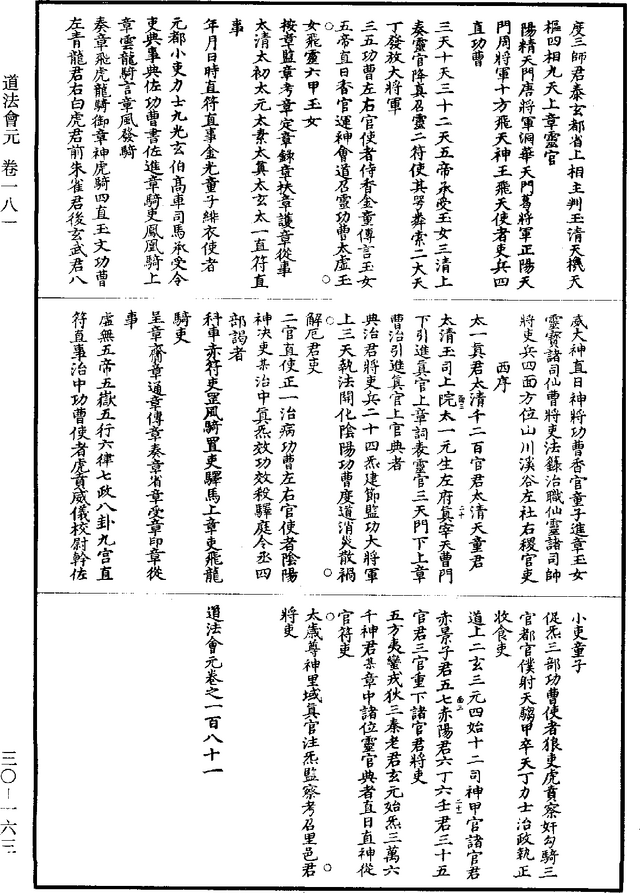 度三師君泰玄都省上相主判玉清天機天
樞四相九天上章靈官
陽精天門唐將軍洞華天門葛將軍正陽天
門周將軍十方飛天神王飛天使者吏兵四
直功曹
三天十天三十二天五帝承受玉女三清上
奏靈官降真召靈二符使其咢粦素二大天
丁發放大將軍
三五功曹左右官使者侍香金童傳言玉女
五帝直日香官運神會道召靈功曹太虛玉
女飛靈六甲玉女
按章監章考章定章錄章扶章護章從事
太清太初太元太素太真太玄太一直符直
事
年月日時直符直事金光童子緋衣使者
元都小吏力士九光玄伯髙車司馬承受令
吏典事典佐功曹書佐進章騎吏鳳凰騎上
章雲龍騎言章風發騎
奏章飛虎龍騎御章神虎騎四直玉文功曹
左青龍君右白虎君前朱雀君後玄武君八
威大神直日神將功曹香官童子進章玉女
靈寳諸司仙曹將吏法籙治職仙靈諸司師
將吏兵四面方位山川溪谷左社右稷官吏
西序
太一真君太清千二百官君太清天童君
太清玉司上院太一元生左府真宰天曹門
下引進真官上章詞表靈官三天門下上章
曹治引進真官上官典者
典治君將吏兵二十四炁建節監功大將軍
上三天執法開化陰陽功曹度道消災散禍
解厄君吏
二官直使正一治病功曹左右官使者陰陽
神決吏某治中真炁效功效殺驛庭令丞四
部謁者
科車赤符吏罡風騎置吏驛馬上章吏飛龍
騎吏
呈章齎章通章傳章奏章省章受章印章從
事
虛無五帝五嶽五行六律七政八卦九宮直
符直事治中功曹使者虎賁威儀校尉幹佐
小吏童子
促炁三部功曹使者狼吏虎賁察奸勾騎三
官都官僕射天騶甲卒天丁力士治政執正
收食吏
道上二玄三元四始十二司神甲官諸官君
赤景子君五七赤陽君六丁六壬君三十五
官君三官重下諸官君將吏
五方夷蠻戎狄三秦老君玄元始炁三萬六
千神君某章中諸位靈官典者直日直神從
官符吏
太歲尊神里域真官注炁監察考召里邑君
將吏
道法會元卷之一百八十一
道法會元 卷一八一
三〇-一六三